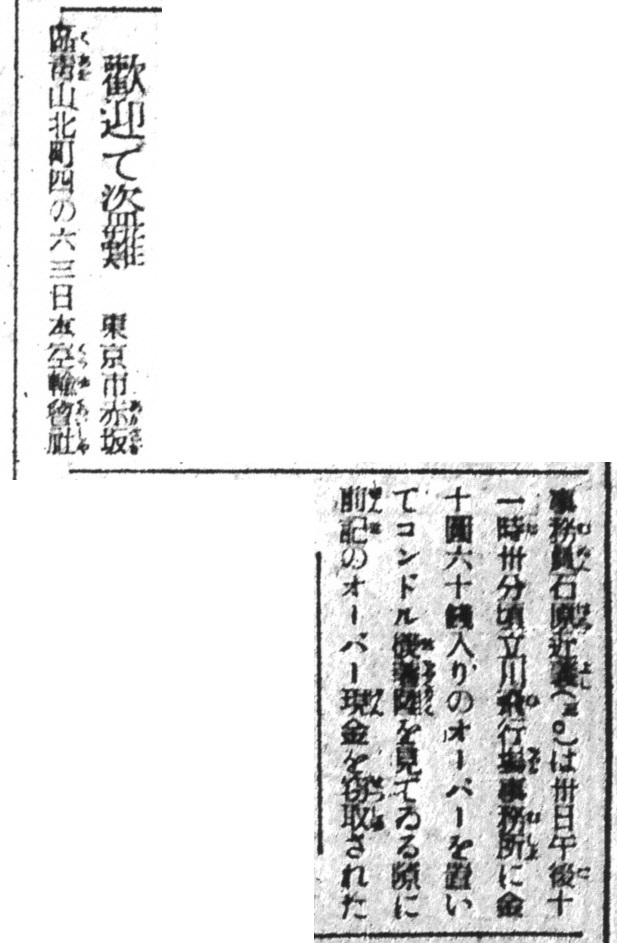 歡迎で盜難　東京市赤坂
區青山北町四の六三日本空輸會社
事務員石原近義(三〇)は卅日午後十
一時卅分頃立川飛行場事務所に金
十圓六十錢入りのオーバーを置い
てコンドル機著陸を見てゐる隙に
前記のオーバー現金を窃取された